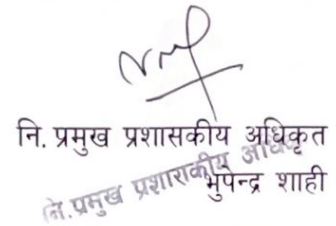 नि. प्रमुख प्रशासकीय अधिकृत
भुपेन्द्र शाही
नि. प्रमुख प्रशासकीय